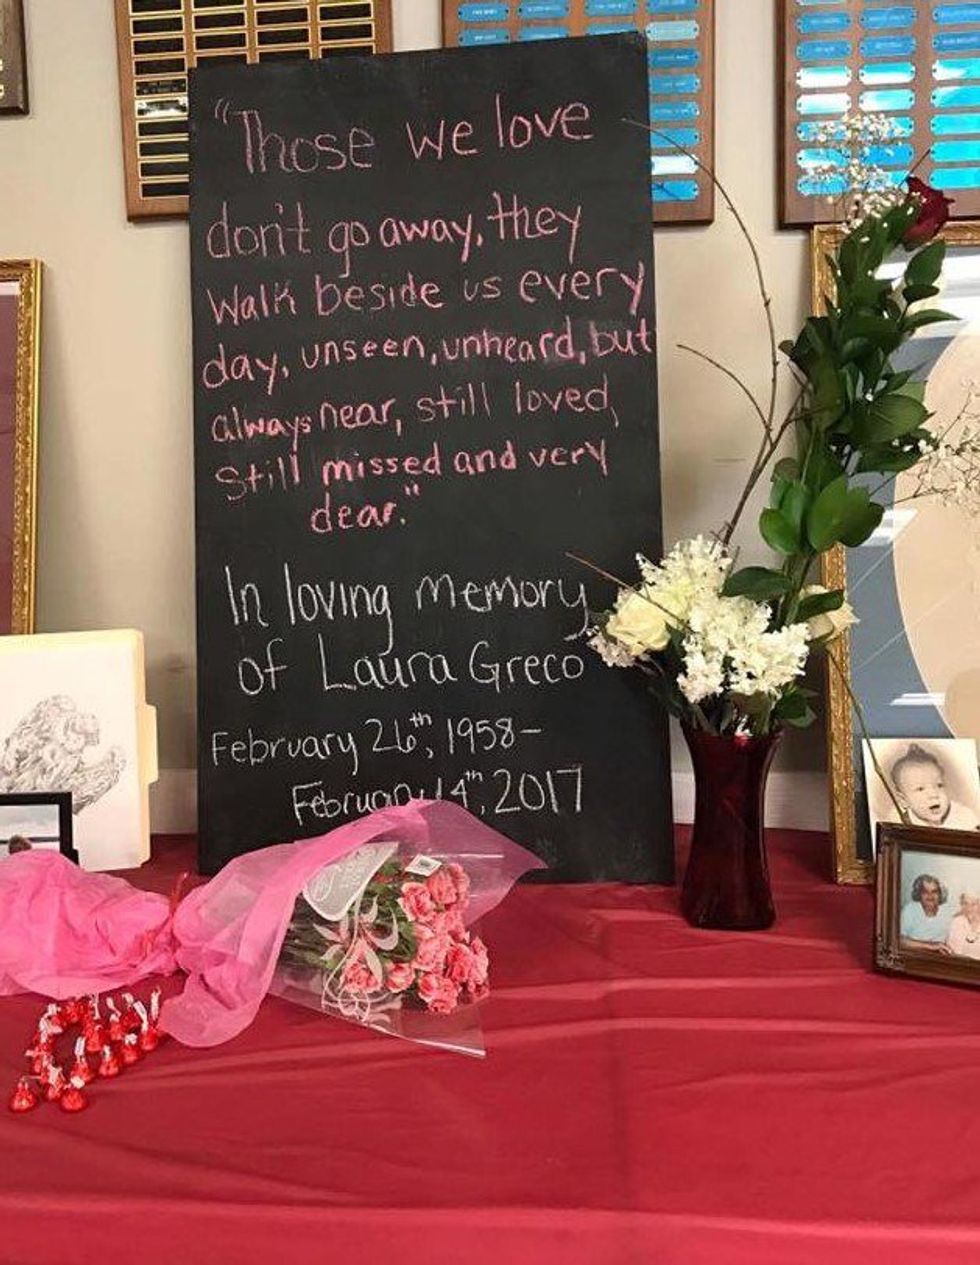 "Those we love
don't go away, they
walk beside us every
day, unseen, unheard, but
always near, still loved,
still missed and very
dear."
In loving memory
of Laura Greco
February 26th, 1958-
February 4th, 2017